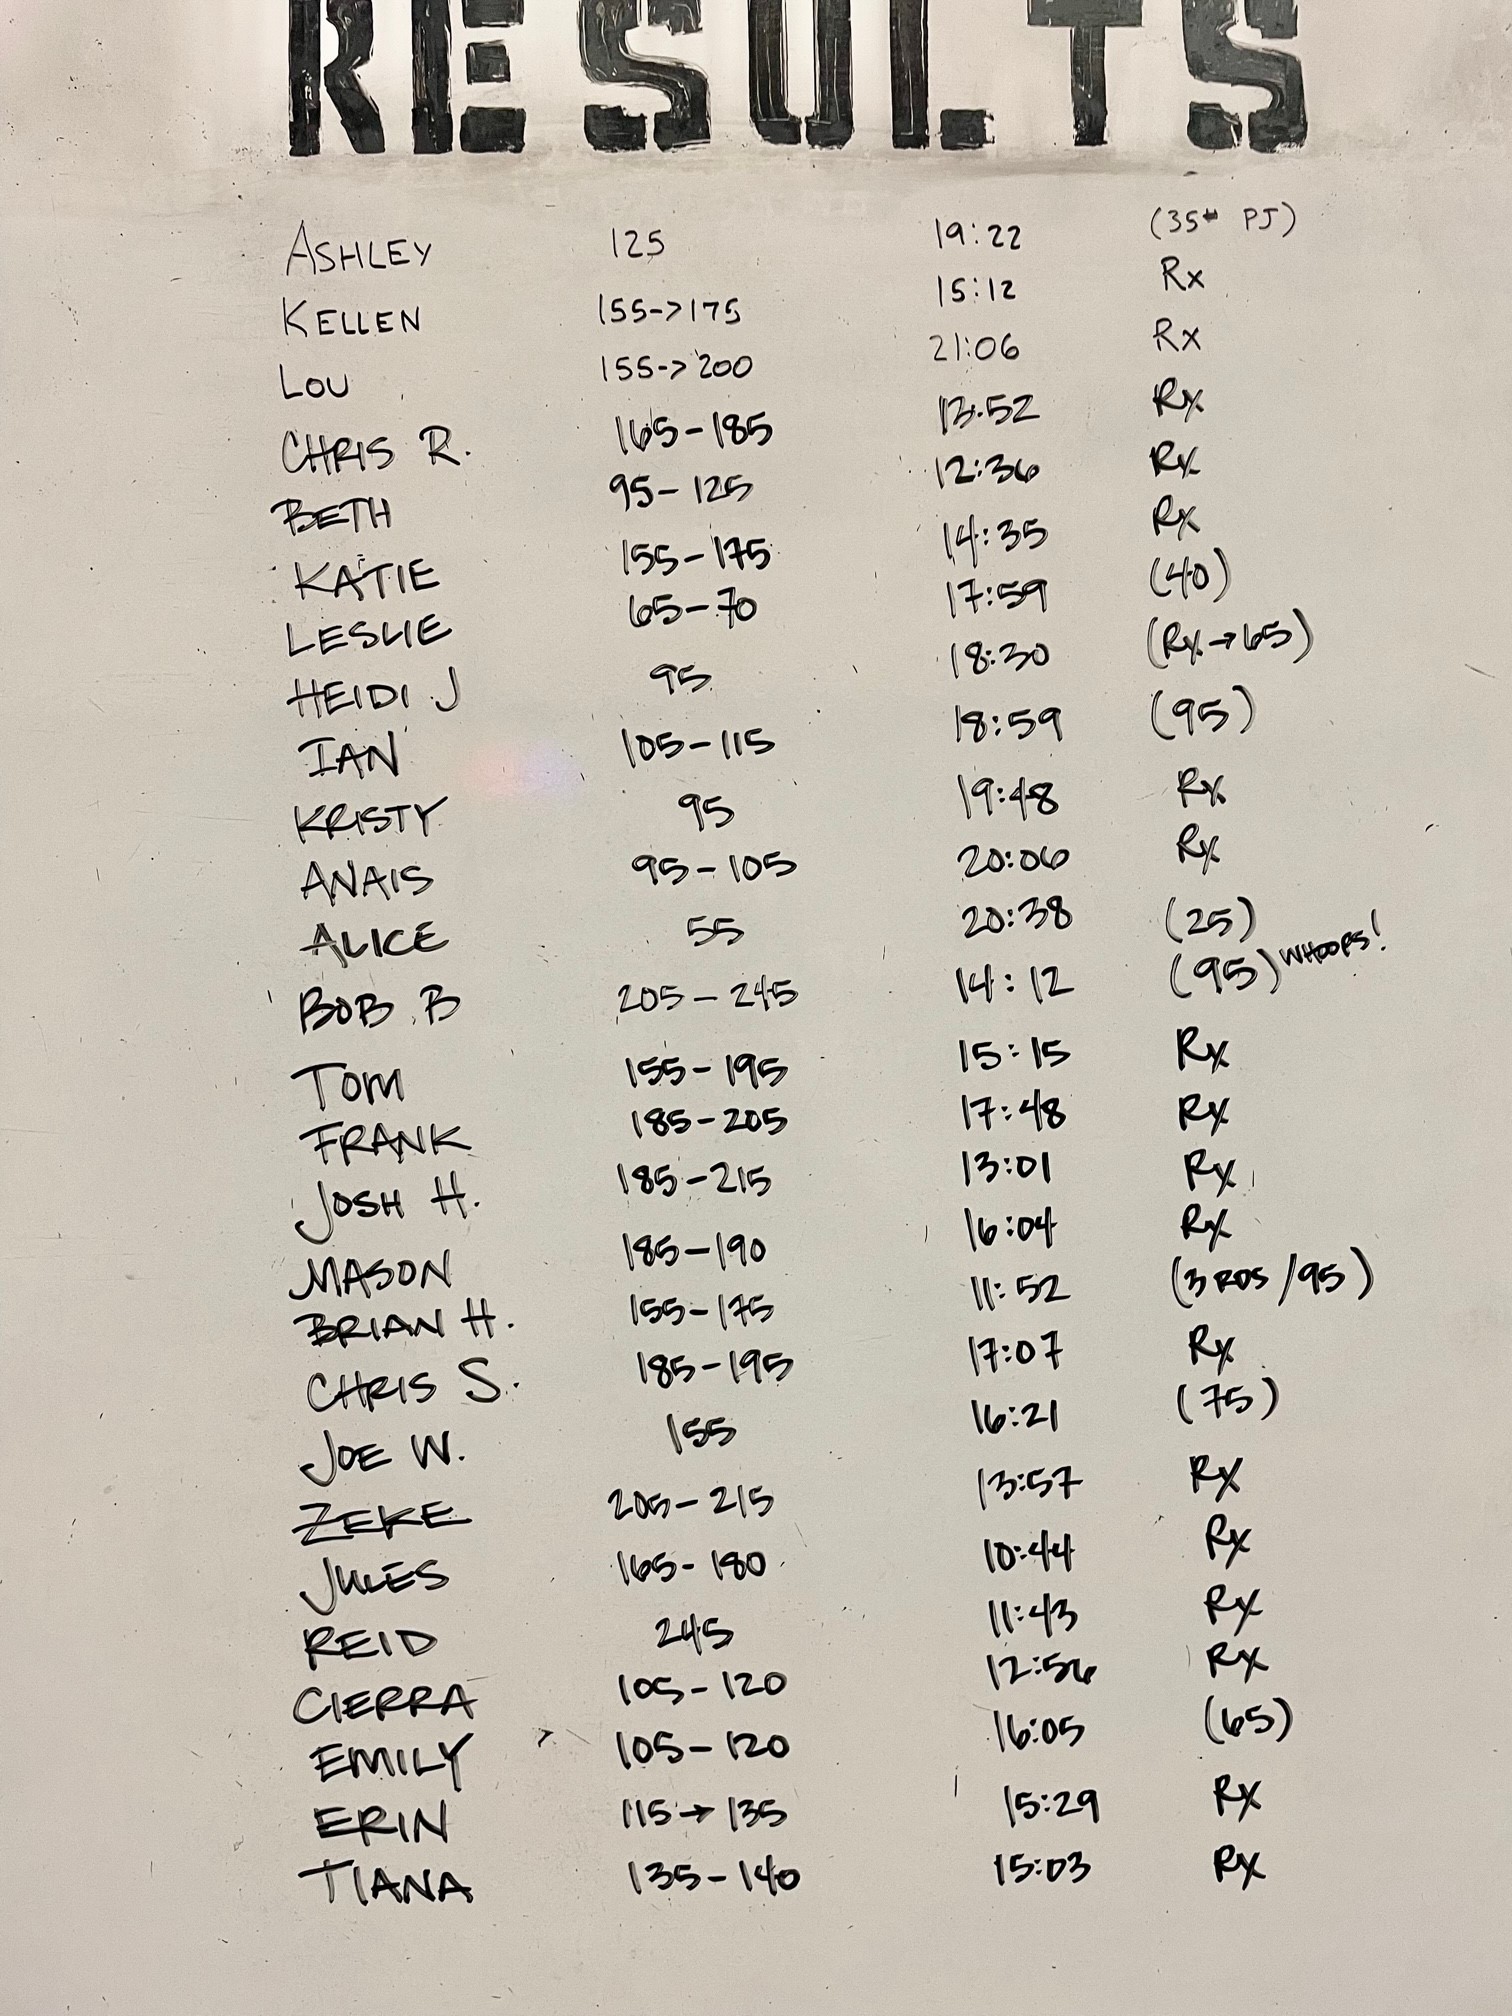 RESULTS
ASHLEY 125 19:22 (35# PJ)
KELLEN 155->175 15:12 Rx
LOU 155->200 21:06 Rx
CHRIS R. 165-185 13:52 Rx
BETH 95-125 12:36 Rx
KATIE 155-175 14:35 Rx
LESLIE 65-70 17:59 (40)
HEIDI J 95 18:30 (Rx→65)
IAN 105-115 18:59 (95)
KRISTY 95 19:48 Rx
ANAIS 95-105 20:06 Rx
ALICE 55 20:38 (25)
BOB B 205-245 14:12 (95) WHOOPS!
TOM 155-195 15:15 Rx
FRANK 185-205 17:48 Rx
JOSH H. 185-215 13:01 Rx
MASON 185-190 16:04 Rx
BRIAN H. 155-175 11:52 (3 RDS/95)
CHRIS S. 185-195 17:07 Rx
JOE W. 155 16:21 (75)
ZEKE 205-215 13:57 Rx
JULES 165-180 10:44 Rx
REID 245 11:43 Rx
CIERRA 105-120 12:56 Rx
EMILY 105-120 16:05 (65)
ERIN 115→135 15:29 Rx
TIANA 135-140 15:03 Rx